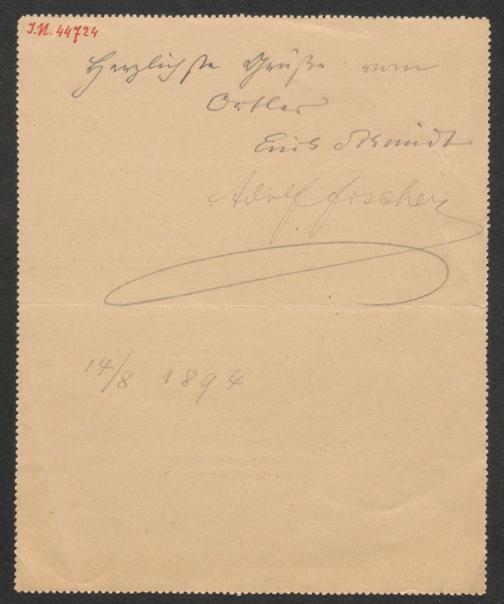 J.N. 44724
Herzlichste Grüße vom
Ortler
Erich Schmidt
Adolf Fischer
14/8 1894